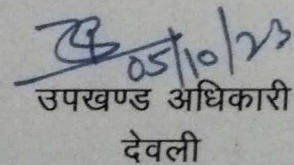 05/10/23
उपखण्ड अधिकारी
देवली